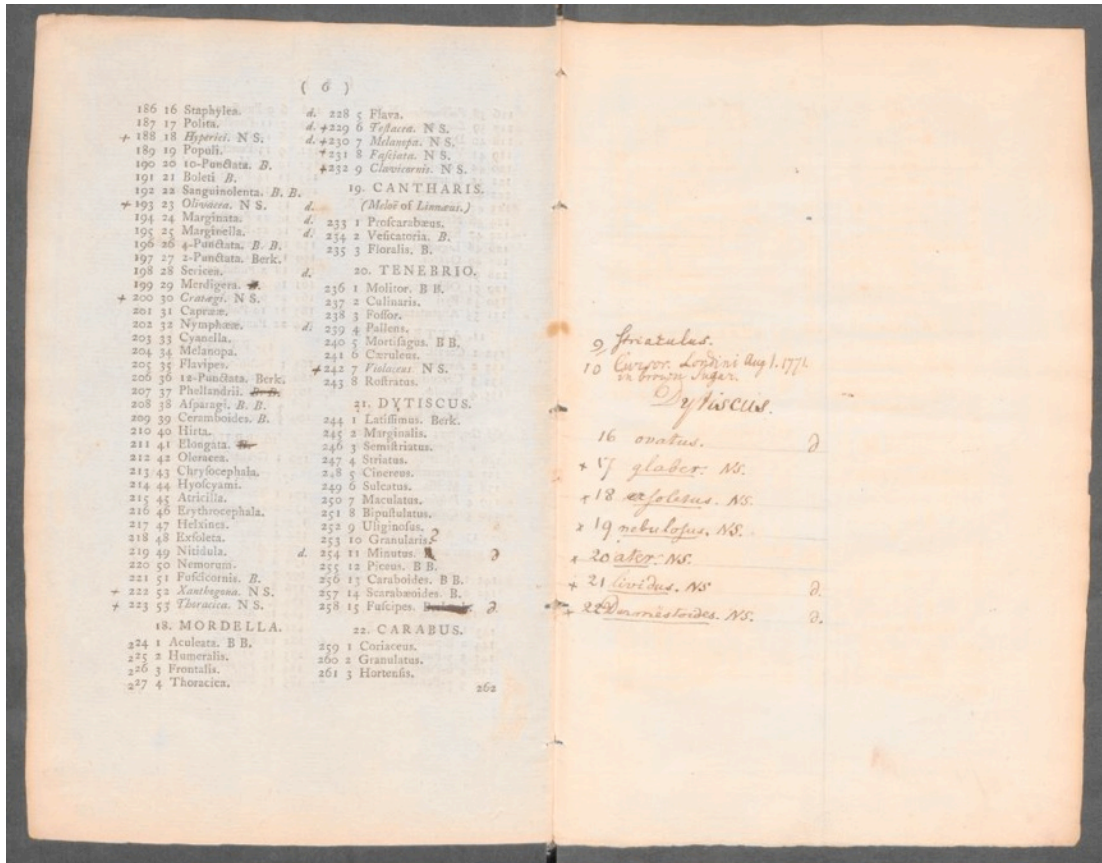 ( 6 )
186 16 Staphylea.
187 17 Polita.
+ 188 18 Hyperici. N S.
189 19 Populi.
190 20 10-Punctata. B.
191 21 Boleti B.
192 22 Sanguinolenta. B. B.
+ 193 23 Olivacea. N S.
194 24 Marginata.
195 25 Marginella.
196 26 4-Punctata. B. B.
197 27 2-Punctata. Berk.
198 28 Sericea.
199 29 Merdigera.
+ 200 30 Cratægi. N S.
201 31 Capreæ.
202 32 Nymphææ.
203 33 Cyanella.
204 34 Melanopa.
205 35 Flavipes.
206 36 12-Punctata. Berk.
207 37 Phellandrii. B. B.
208 38 Aſparagi. B. B.
209 39 Ceramboides. B.
210 40 Hirta.
211 41 Elongata.
212 42 Oleracea.
213 43 Chryſocephala.
214 44 Hyoſcyami.
215 45 Atricilla.
216 46 Erythrocephala.
217 47 Helxines.
218 48 Exſoleta.
219 49 Nitidula.
220 50 Nemorum.
221 51 Fuſcicornis. B.
+ 222 52 Xanthogona. N S.
+ 223 53 Thoracica. N S.
18. MORDELLA.
224 1 Aculeata. B B.
225 2 Humeralis.
226 3 Frontalis.
227 4 Thoracica.
d. 228 5 Flava.
d. +229 6 Teſtacea. N S.
d. +230 7 Melanopa. N S.
+231 8 Faſciata. N S.
+232 9 Clavicornis. N S.
19. CANTHARIS.
d. (Meloë of Linnæus.)
d. 233 1 Proſcarabæus.
d. 234 2 Veſicatoria. B.
235 3 Floralis. B.
d. 20. TENEBRIO.
236 1 Molitor. B B.
237 2 Culinaris.
238 3 Foſſor.
d. 239 4 Pallens.
240 5 Mortiſagus. B B.
241 6 Cæruleus.
+242 7 Violaceus N S.
243 8 Roſtratus.
21. DYTISCUS.
244 1 Latiſſimus. Berk.
245 2 Marginalis.
246 3 Semiſtriatus.
247 4 Striatus.
248 5 Cinereus.
249 6 Sulcatus.
250 7 Maculatus.
251 8 Bipuſtulatus.
252 9 Uliginoſus.
253 10 Granularis?
d. 254 11 Minutus. B ∂
255 12 Piceus. B B.
256 13 Caraboides. B B.
257 14 Scarabæoides. B.
258 15 Fuſcipes. ∂.
22. CARABUS.
259 1 Coriaceus.
260 2 Granulatus.
261 3 Hortenſis.
262
9 Striatulus.
10 Curſor. Londini Aug 1. 1771.
in brown Sugar.
Dytiscus.
16 ovatus. ∂
+ 17 glaber. NS.
+ 18 exſoletus. NS.
+ 19 nebuloſus. NS.
+ 20 ater. NS.
+ 21 lividus. NS ∂.
+ 22 Dermestoides. NS. ∂.